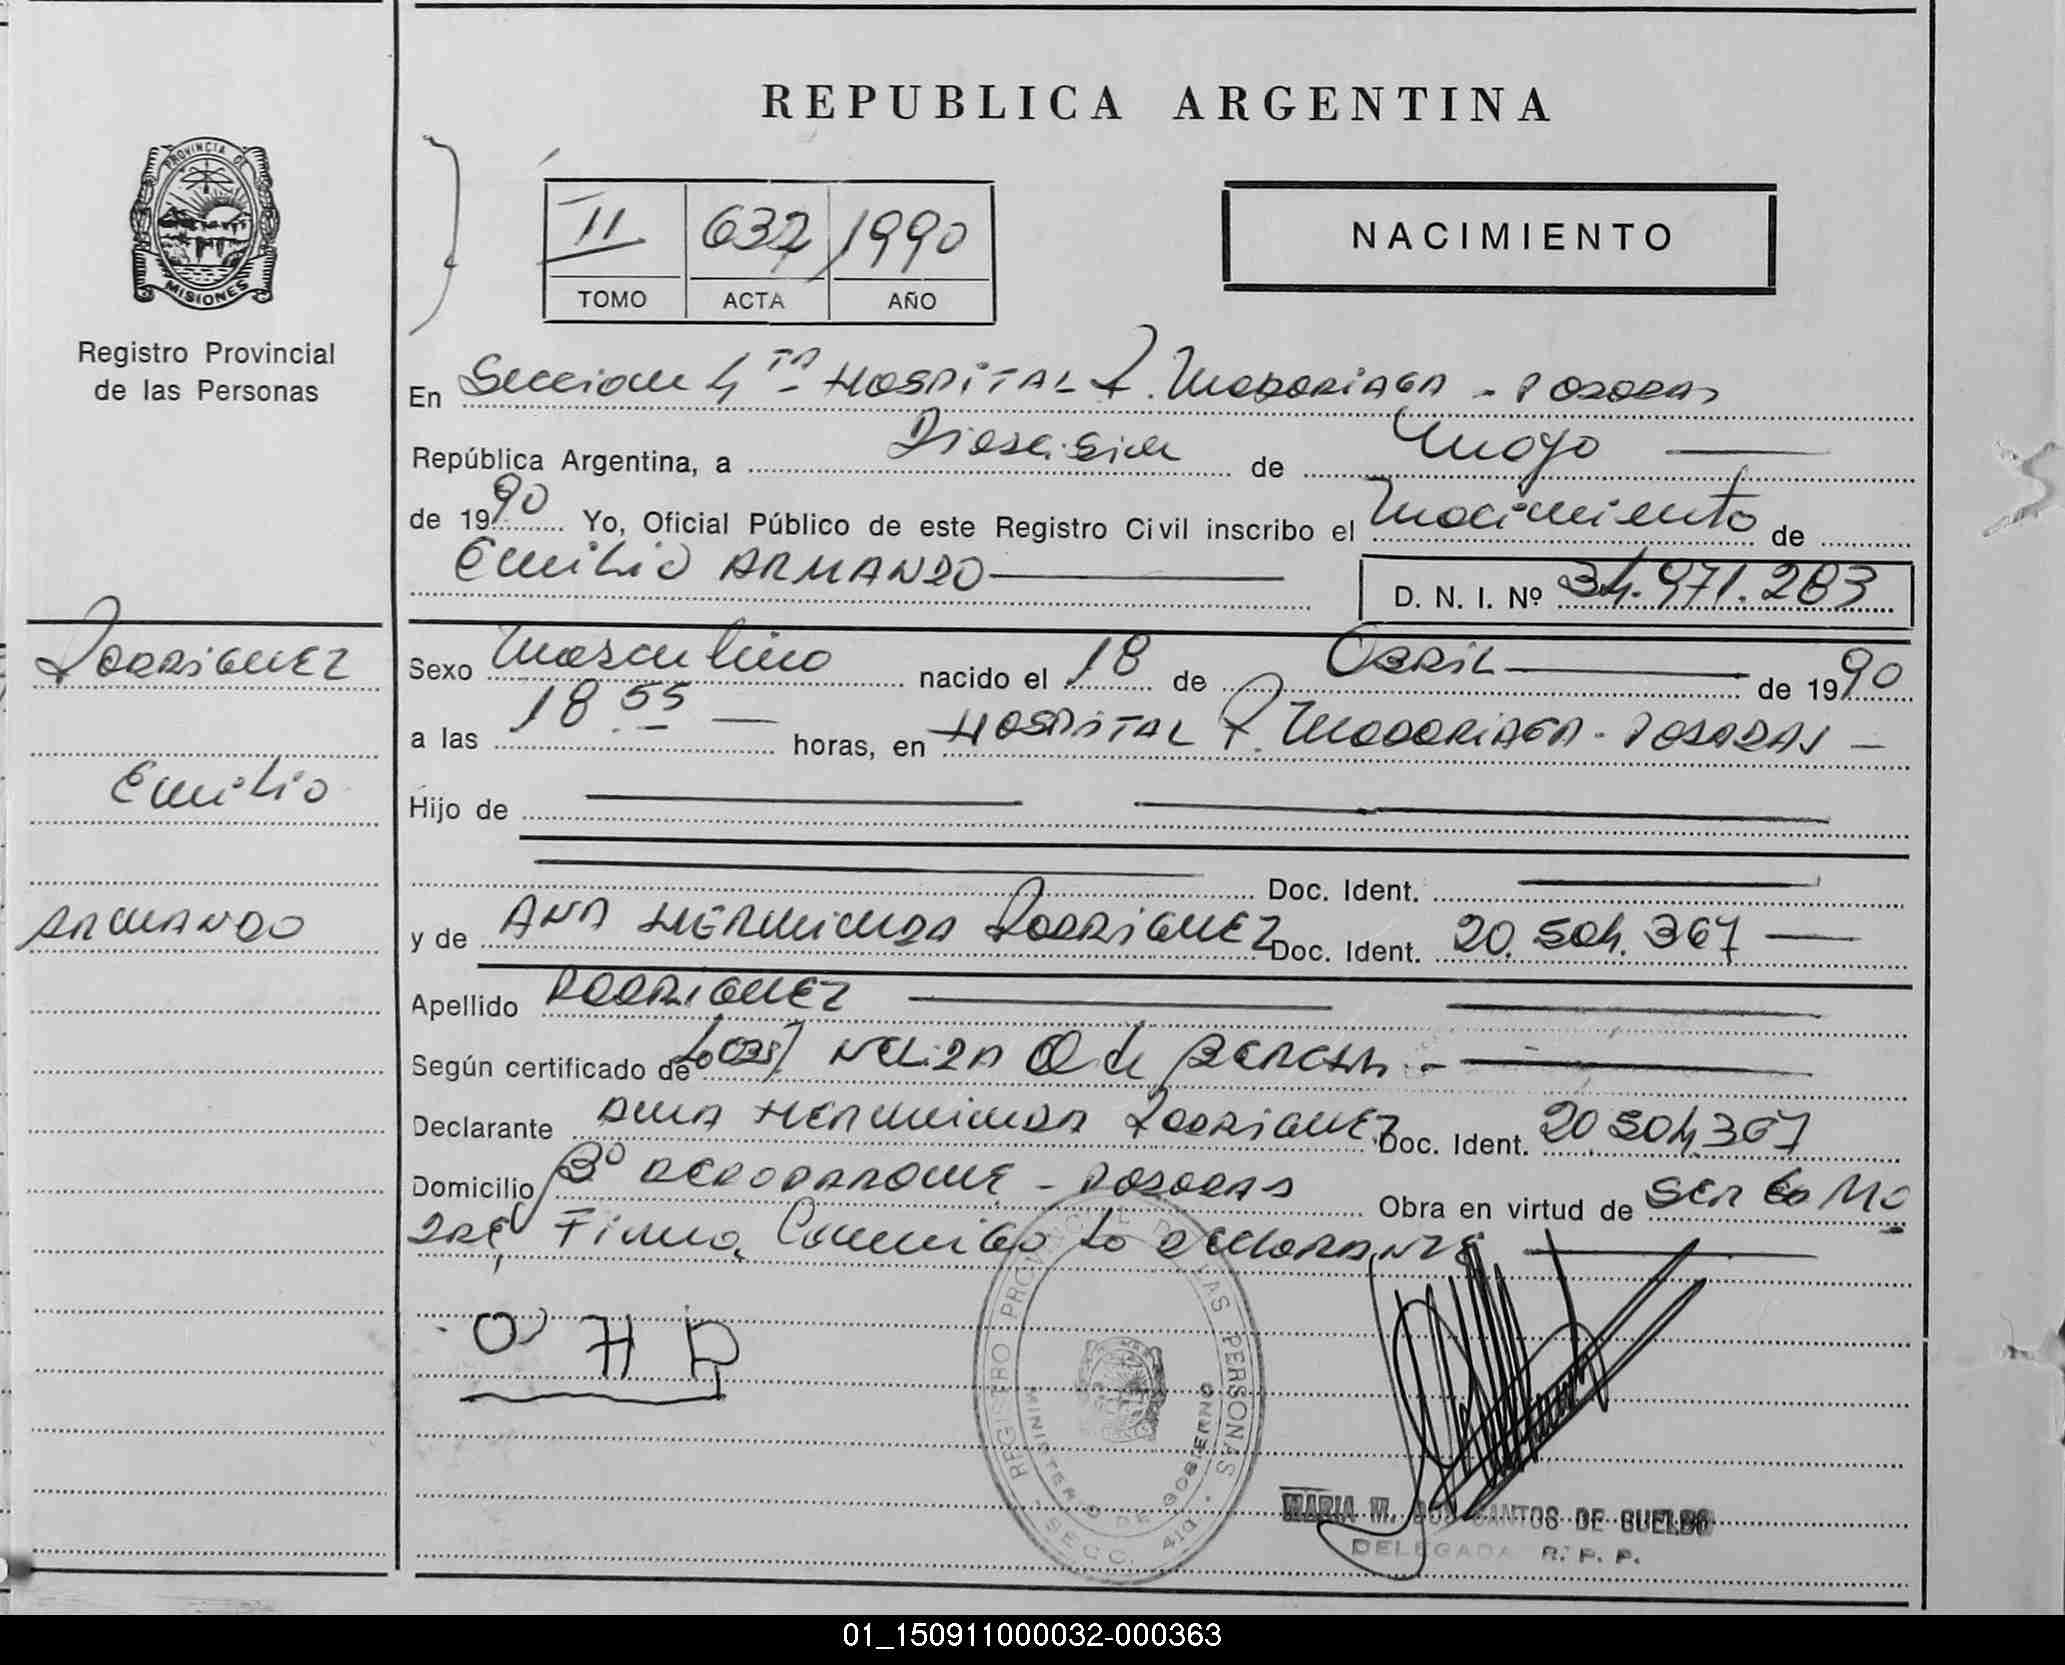 REPUBLICA ARGENTINA
PROVINCIA DE
MISIONES
Registro Provincial
de las Personas
II 632 1990
TOMO ACTA AÑO
NACIMIENTO
En Seccion 4ta HOSPITAL R. MADARIAGA - POSADAS
República Argentina, a de Mayo
de 1990 Yo, Oficial Público de este Registro Civil inscribo el Nacimiento de
Emilio ARMANDO
D. N. I. Nº 34.971.283
RODRIGUEZ
Emilio
ARMANDO
Sexo Masculino nacido el 18 de ABRIL de 1990
a las 18.55 horas, en HOSPITAL R. MADARIAGA - POSADAS
Hijo de
Doc. Ident.
y de ANA HERMINDA RODRIGUEZ Doc. Ident. 20.504.367
Apellido RODRIGUEZ
Según certificado de NELIDA de
Declarante ANA HERMINDA RODRIGUEZ Doc. Ident. 20504367
Domicilio Bº AERODARROME - POSADAS Obra en virtud de SER LA MA
DRE, Firma Conmigo LA DECLARANTE
A H R
REGISTRO PROVINCIAL DE LAS PERSONAS
MINISTERIO DE GOBIERNO
SECC. 4ta.
MARIA M. DOS SANTOS DE
DELEGADA R. P. P.
01_150911000032-000363